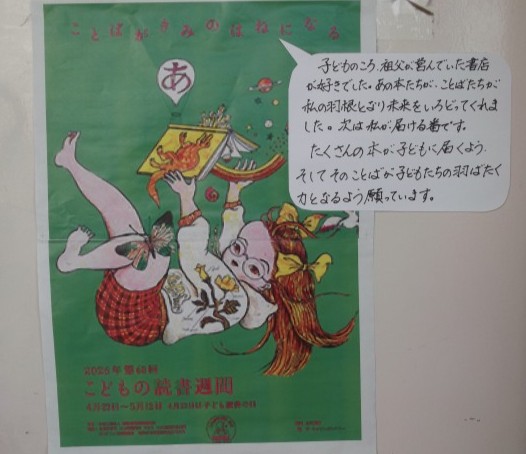 ことばがきみのはねになる
あ
子どものころ、祖父が営んでいた書店
が好きでした。あの本たちが、ことばたちが
私の羽根となり未来をいろどってくれま
した。次は私が届ける番です。
たくさんの本が子どもに届くよう、
そしてそのことばが子どもたちの羽ばたく
力となるよう願っています。
2025年 第66回
こどもの読書週間
4月23日〜5月12日 4月23日は子ども読書の日